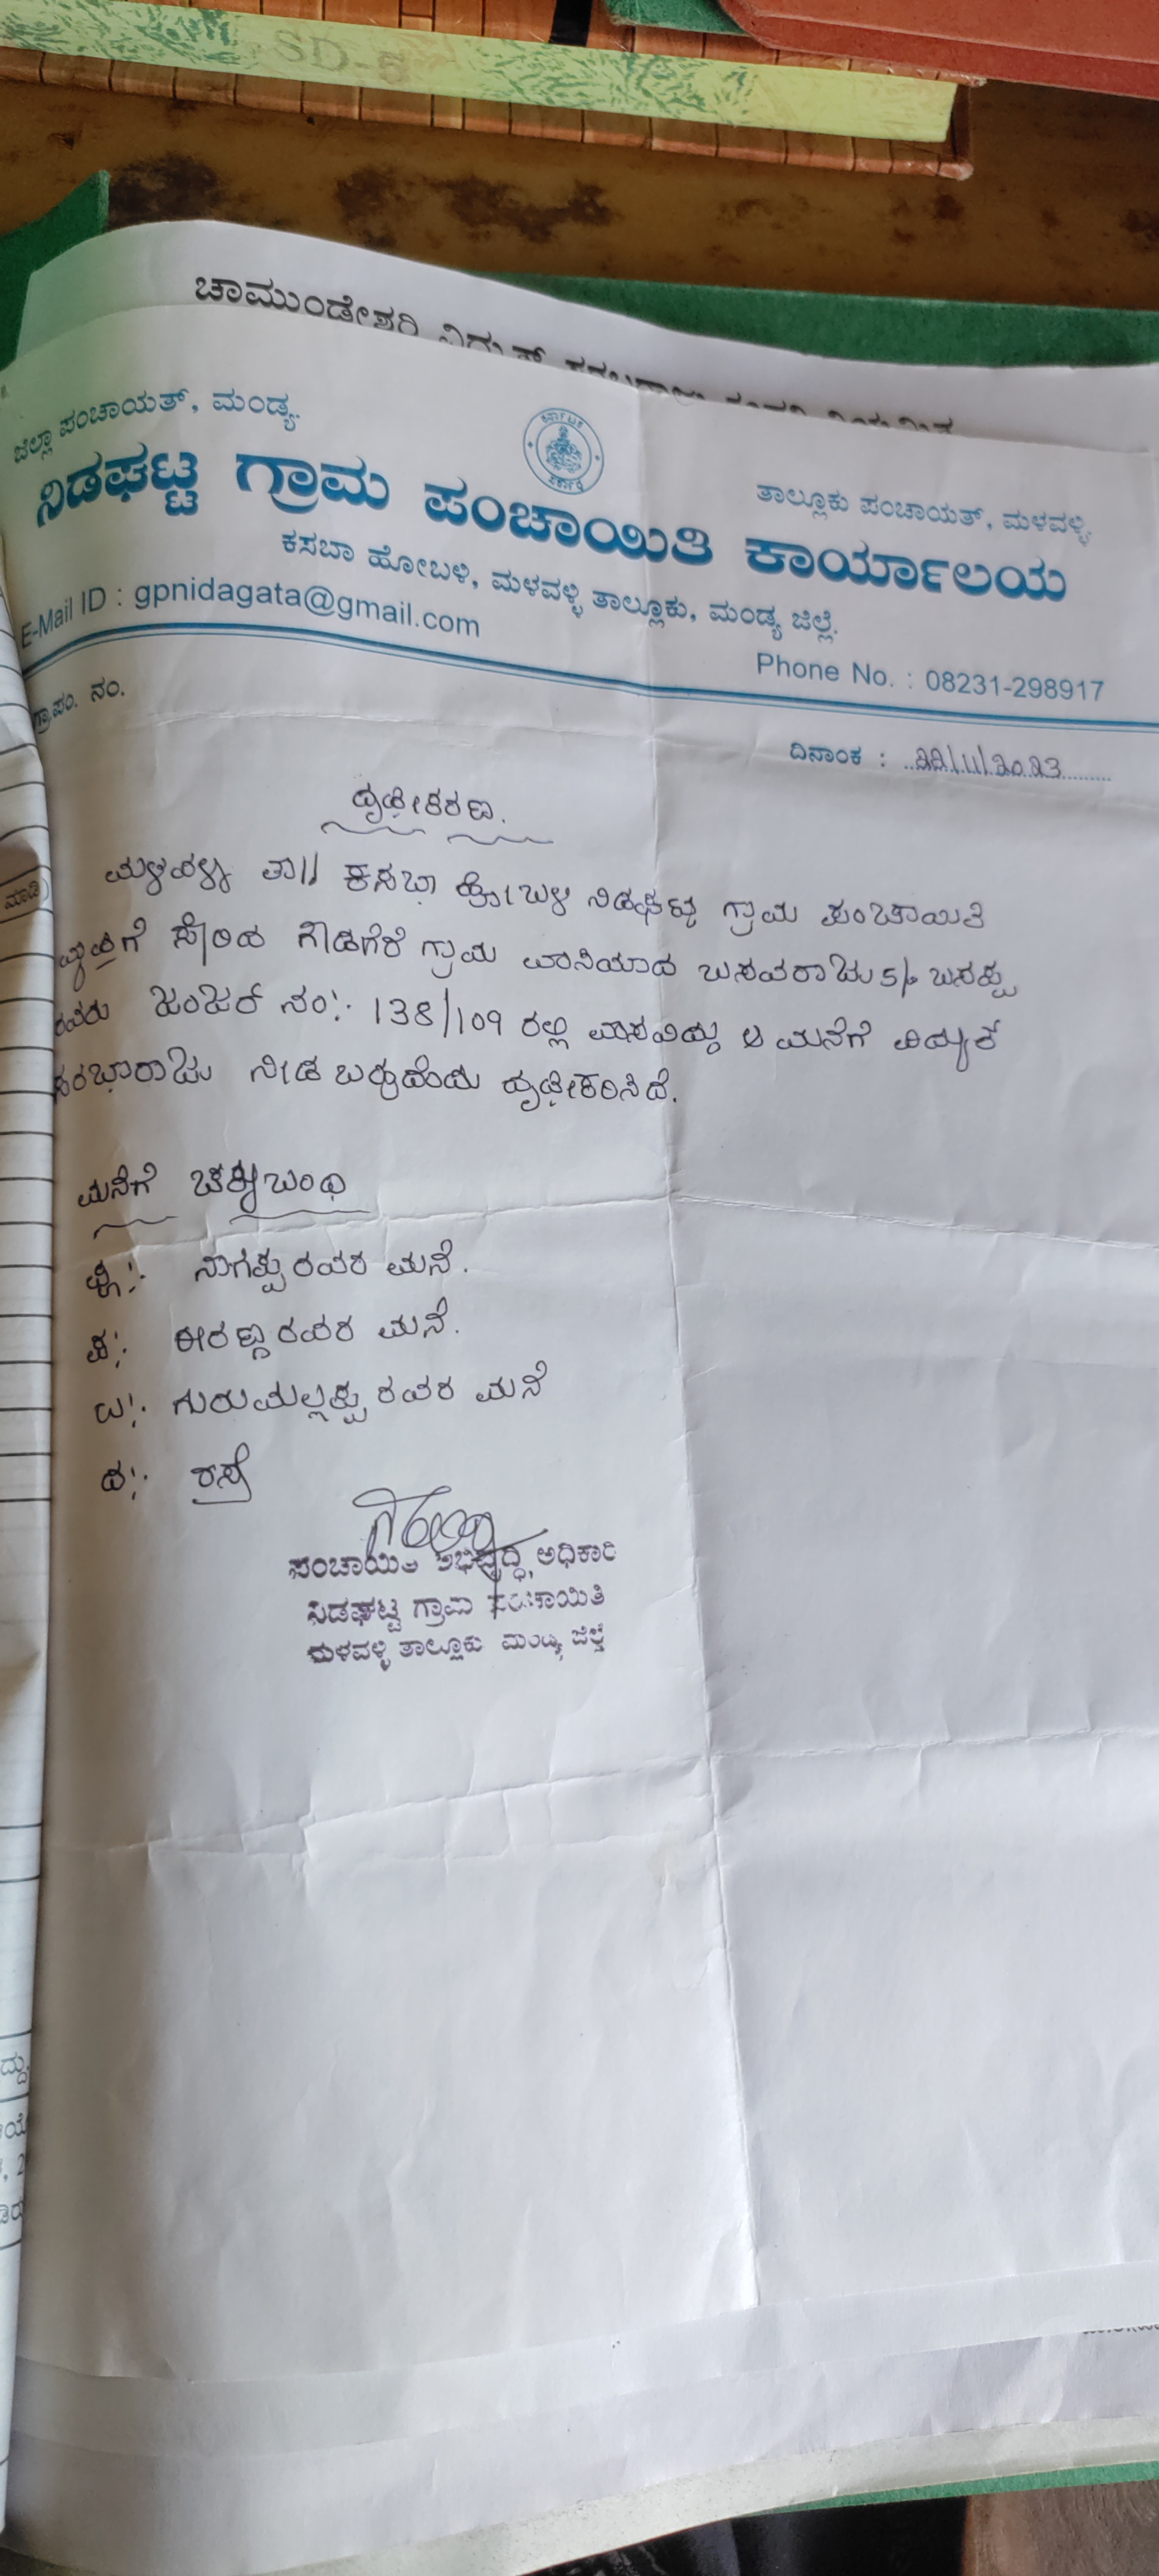 SD-6
ಚಾಮುಂಡೇಶ್ವರಿ ವಿದ್ಯುತ್
ಜಿಲ್ಲಾ ಪಂಚಾಯತ್, ಮಂಡ್ಯ.
ತಾಲ್ಲೂಕು ಪಂಚಾಯತ್, ಮಳವಳ್ಳಿ.
ನಿಡಘಟ್ಟ ಗ್ರಾಮ ಪಂಚಾಯಿತಿ ಕಾರ್ಯಾಲಯ
ಕಸಬಾ ಹೋಬಳಿ, ಮಳವಳ್ಳಿ ತಾಲ್ಲೂಕು, ಮಂಡ್ಯ ಜಿಲ್ಲೆ.
E-Mail ID : gpnidagata@gmail.com
Phone No. : 08231-298917
ಗ್ರಾ.ಪಂ. ನಂ.
ದಿನಾಂಕ : 22/11/2023
ದೃಢೀಕರಣ.
ಮಳವಳ್ಳಿ ತಾ|| ಕಸಬಾ ಹೋಬಳಿ ನಿಡಘಟ್ಟ ಗ್ರಾಮ ಪಂಚಾಯಿತಿ
ಸೇರಿದ ಗ್ರಾಮ ವಾಸಿಯಾದ ಬಸವರಾಜು S/o ಬಸಪ್ಪ
ರವರು ಜಂಜರ್ ನಂ:- 138/109 ರಲ್ಲಿ ವಾಸವಿದ್ದು ಆ ಮನೆಗೆ ವಿದ್ಯುತ್
ಸರಬಾರಾಜು ನೀಡ ಬಹುದೆಂದು ದೃಢೀಕರಿಸಿದೆ.
ಮನೆಗೆ ಚಕ್ಕುಬಂಧಿ
ಪೂ:- ನಾಗಪ್ಪ ರವರ ಮನೆ.
ಪ:- ಈರಣ್ಣ ರವರ ಮನೆ.
ಉ:- ಗುರುಮಲ್ಲಪ್ಪ ರವರ ಮನೆ
ದ:- ರಸ್ತೆ
ಪಂಚಾಯಿತಿ ಅಭಿವೃದ್ಧಿ ಅಧಿಕಾರಿ
ನಿಡಘಟ್ಟ ಗ್ರಾಮ ಪಂಚಾಯಿತಿ
ಮಳವಳ್ಳಿ ತಾಲ್ಲೂಕು ಮಂಡ್ಯ ಜಿಲ್ಲೆ